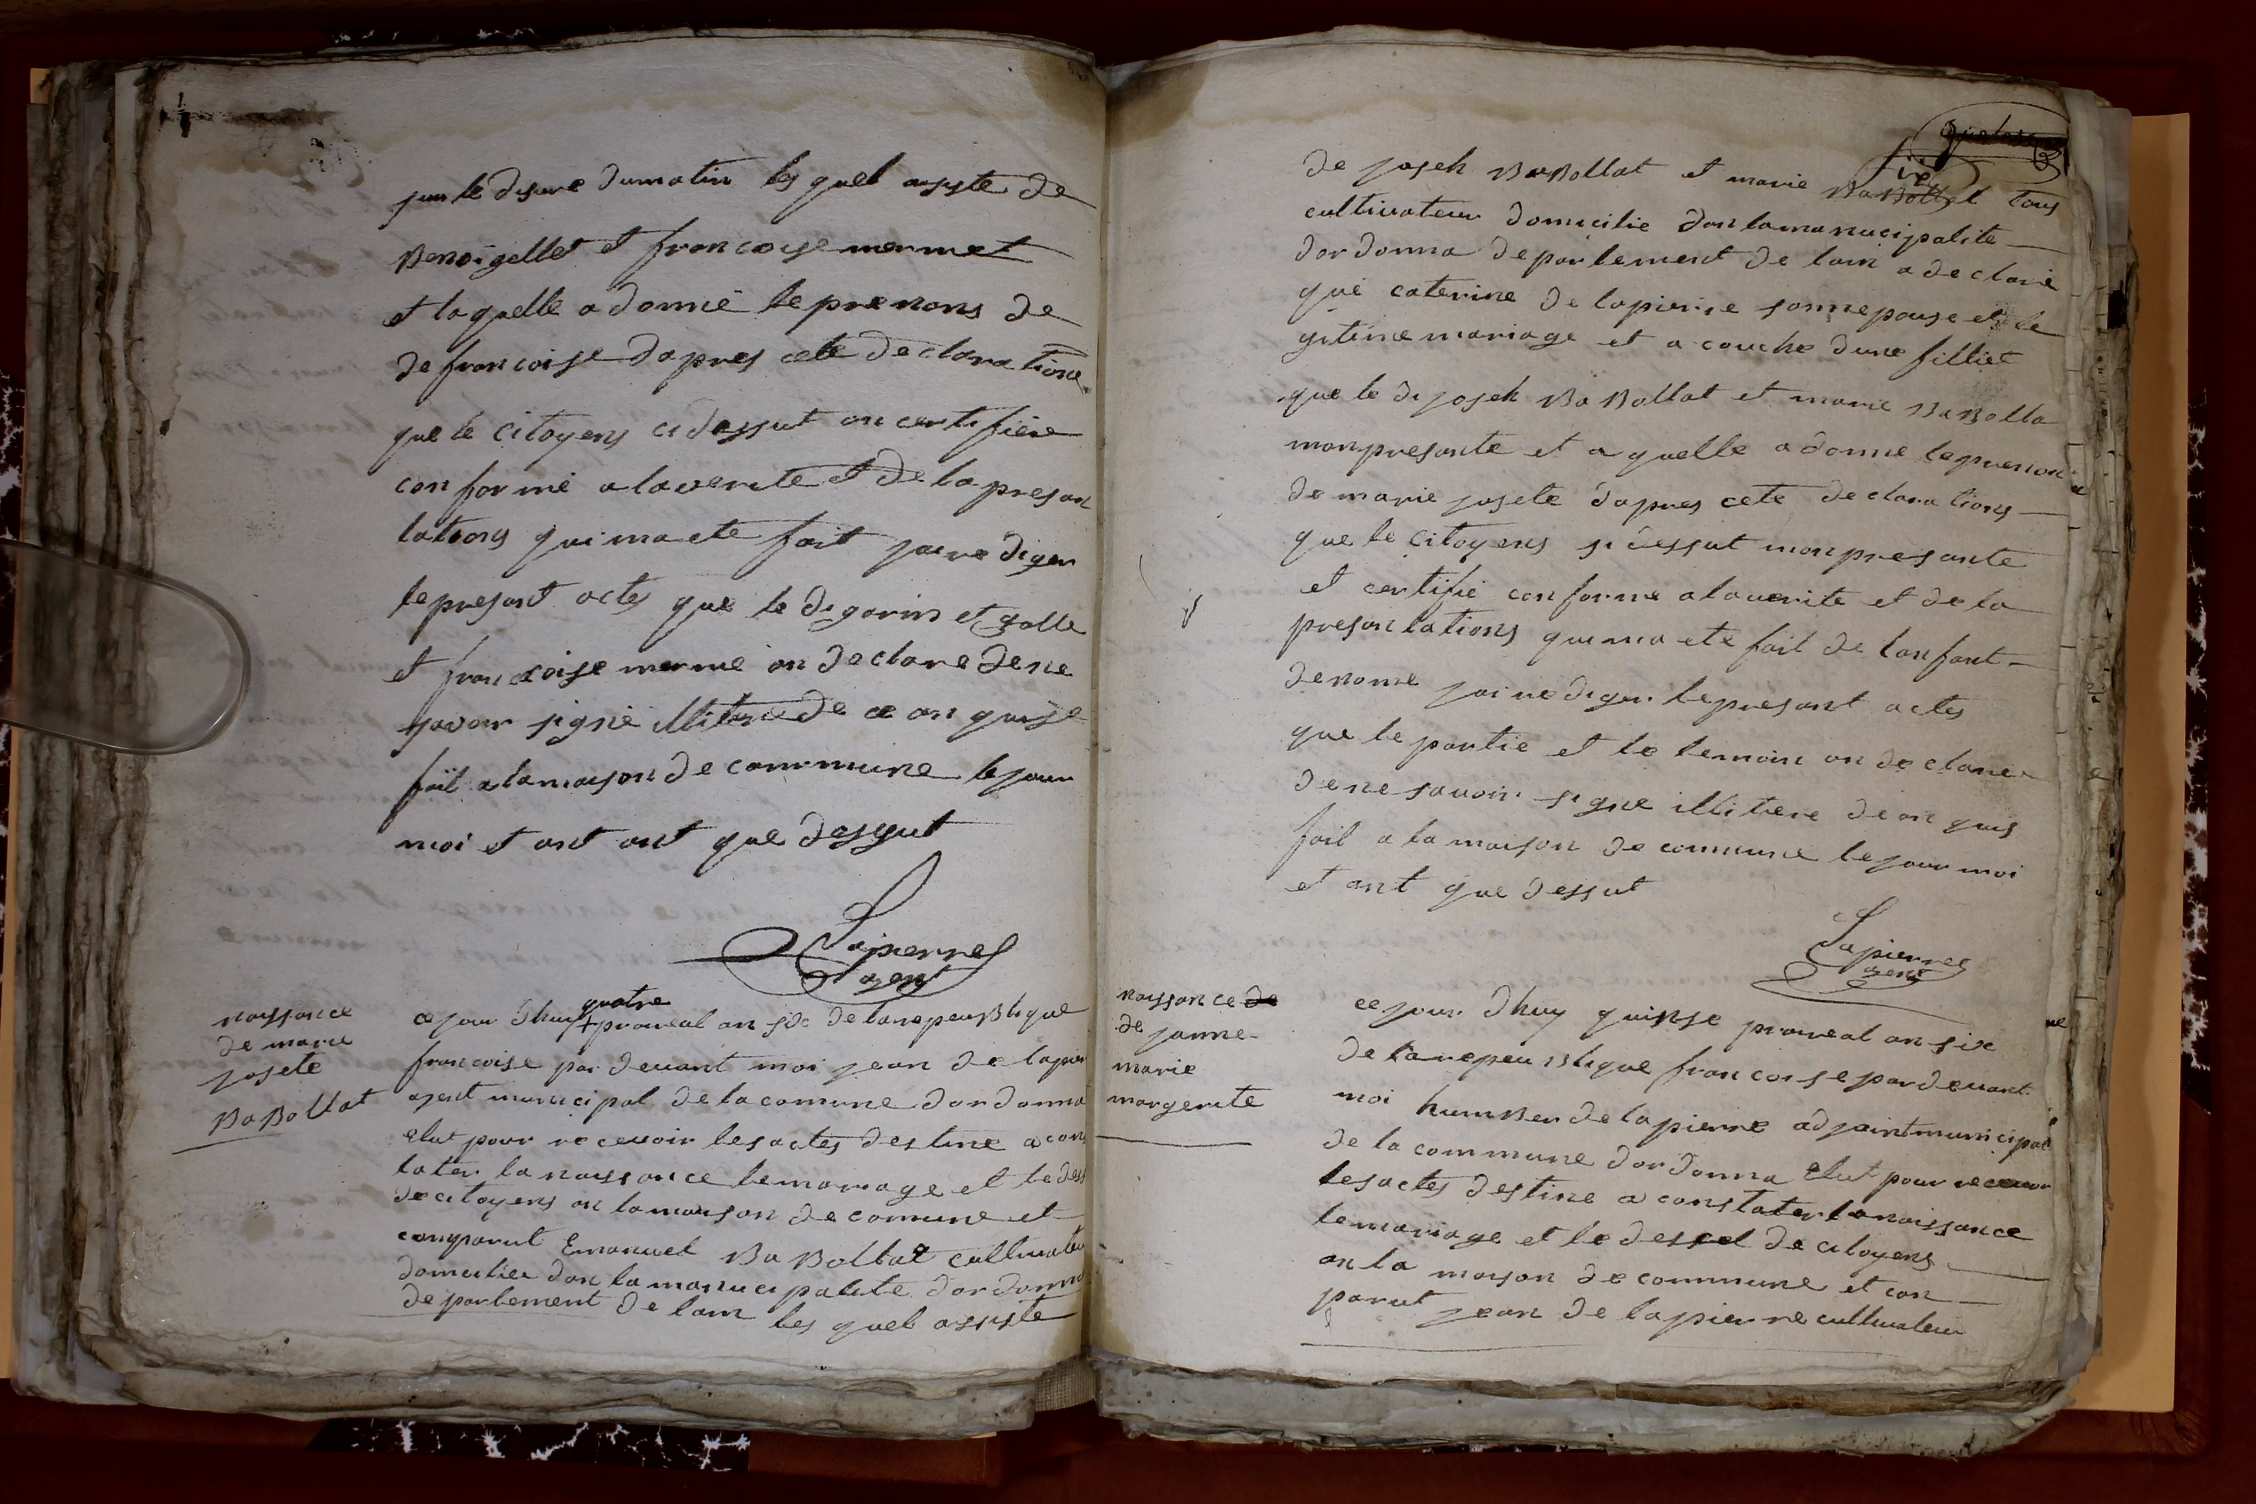 sur le disure dumatin les quel asiste de
Benoi gellet et francoise mermet
et laquelle a donnié le prenons de
de francoise dapres cete declarations
que le citoyens ci dessut on certifiere
conformé a laverite et de la presan
tations qui ma ete fait jai rediger
le presant actes que le di garin et galle
et francoise merme on declare de ne
savoir signé illitere de ce on quise
fait a la maison de commune le jour
moi et ant ant que dessut
Lapierre
agent
naissance
de marie
josete
BaBollat
ce jour dhuy quatre praireal an six de la repeublique
francoise par devant moi jean de lapier
agent municipal de la comune dordonna
elut pour recevoir les actes destine a cons
tater la naissance le mariage et le dess
de citoyens an la maison de comune et
comparut Emanuel BaBollat cultivateur
domicilier dan la manucipalite dordonna
departement de lain les quel assiste
de joseh BaBollat et marie BaBollat tous
cultivateur domicilie dan la manucipalite
dordonna departement de lain a declaré
que caterine de lapierre sonnepouse et le
gitime mariage et acouche dune filliet
que le di joseh BaBollat et marie BaBolla
mon presante et a quelle a donne le prenon
de marie josete dapres cete declarations
que le citoyens si dessut mon presante
et certifié conforme a laverite et de la
presantations qui ma ete fait de lanfant
denome jai rediger le presant actes
que le partie et le temoin on declare
de ne savoir signe illitere de on quis
fait a la maison de commune le jour moi
et ant que dessut
Lapierre
agent
naissance de
de janne
marie
margerite
ce jour dhuy quinse praireal an six
de la repeublique francoise par devant
moi humBer de lapierre adjoint municipal
de la commune dordonna elut pour recevoir
les actes destine a constater la naissance
le mariage et le desset de citoyens
an la maison de commune et con
parut jean de lapierre cultivateur